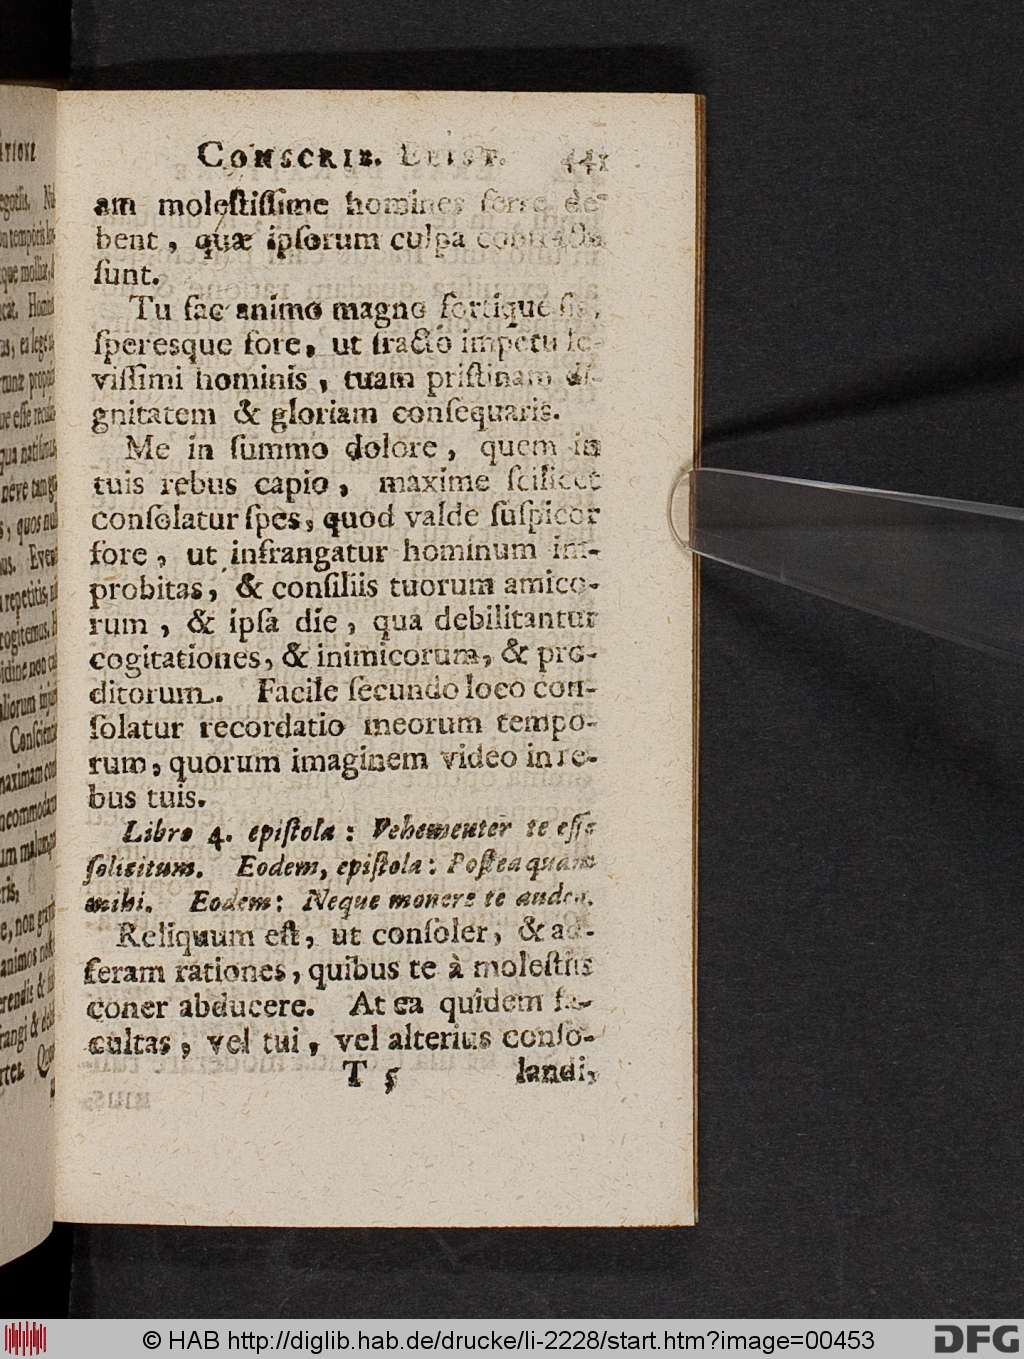 CONSCRIB. EPIST. 441
am molestissime homines ferre de-
bent, quæ ipsorum culpa contracta
sunt.
Tu fac animo magno fortique sis,
speresque fore, ut fracto impetu le-
vissimi hominis, tuam pristinam di-
gnitatem & gloriam consequaris.
Me in summo dolore, quem in
tuis rebus capio, maxime scilicet
consolatur spes, quod valde suspicor
fore, ut infrangatur hominum im-
probitas, & consiliis tuorum amico-
rum, & ipsa die, qua debilitantur
cogitationes, & inimicorum, & pro-
ditorum. Facile secundo loco con-
solatur recordatio meorum tempo-
rum, quorum imaginem video in re-
bus tuis.
Libro 4. epistola: Vehementer te esse
solicitum. Eodem, epistola: Postea quam
mihi. Eodem: Neque monere te audeo.
Reliquum est, ut consoler, & ad-
feram rationes, quibus te à molestiis
coner abducere. At ea quidem fa-
cultas, vel tui, vel alterius conso-
T 5 landi,
© HAB http://diglib.hab.de/drucke/li-2228/start.htm?image=00453
DFG